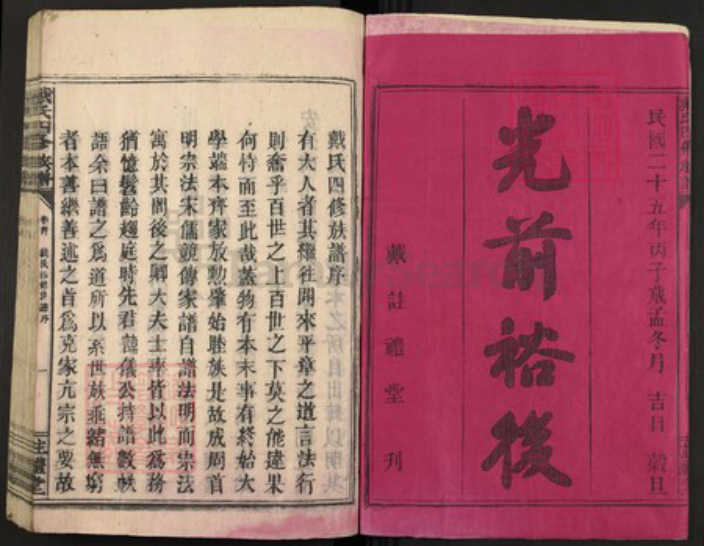 民國二十五年丙子歲孟冬月 吉日 穀旦
光前裕後
戴註禮堂 刊
戴氏四修族譜序
有大人者其繼往開來平章之道言法行
則奮乎百世之上百世之下莫之能違果
何恃而至此哉蓋物有本末事有終始大
學端本齊家放勲肇始睦族是故成周首
明宗法宋儒競傳家譜自譜法明而宗法
寓於其間後之卿大夫士率皆以此為務
猶憶髫齡趨庭時先君 儀公持語數帙
語余曰譜之爲道所以系世族乖緒無窮
者本善繼善述之旨爲克家亢宗之要故
戴氏四修族譜
卷首
戴氏四修族譜序
一
註禮堂